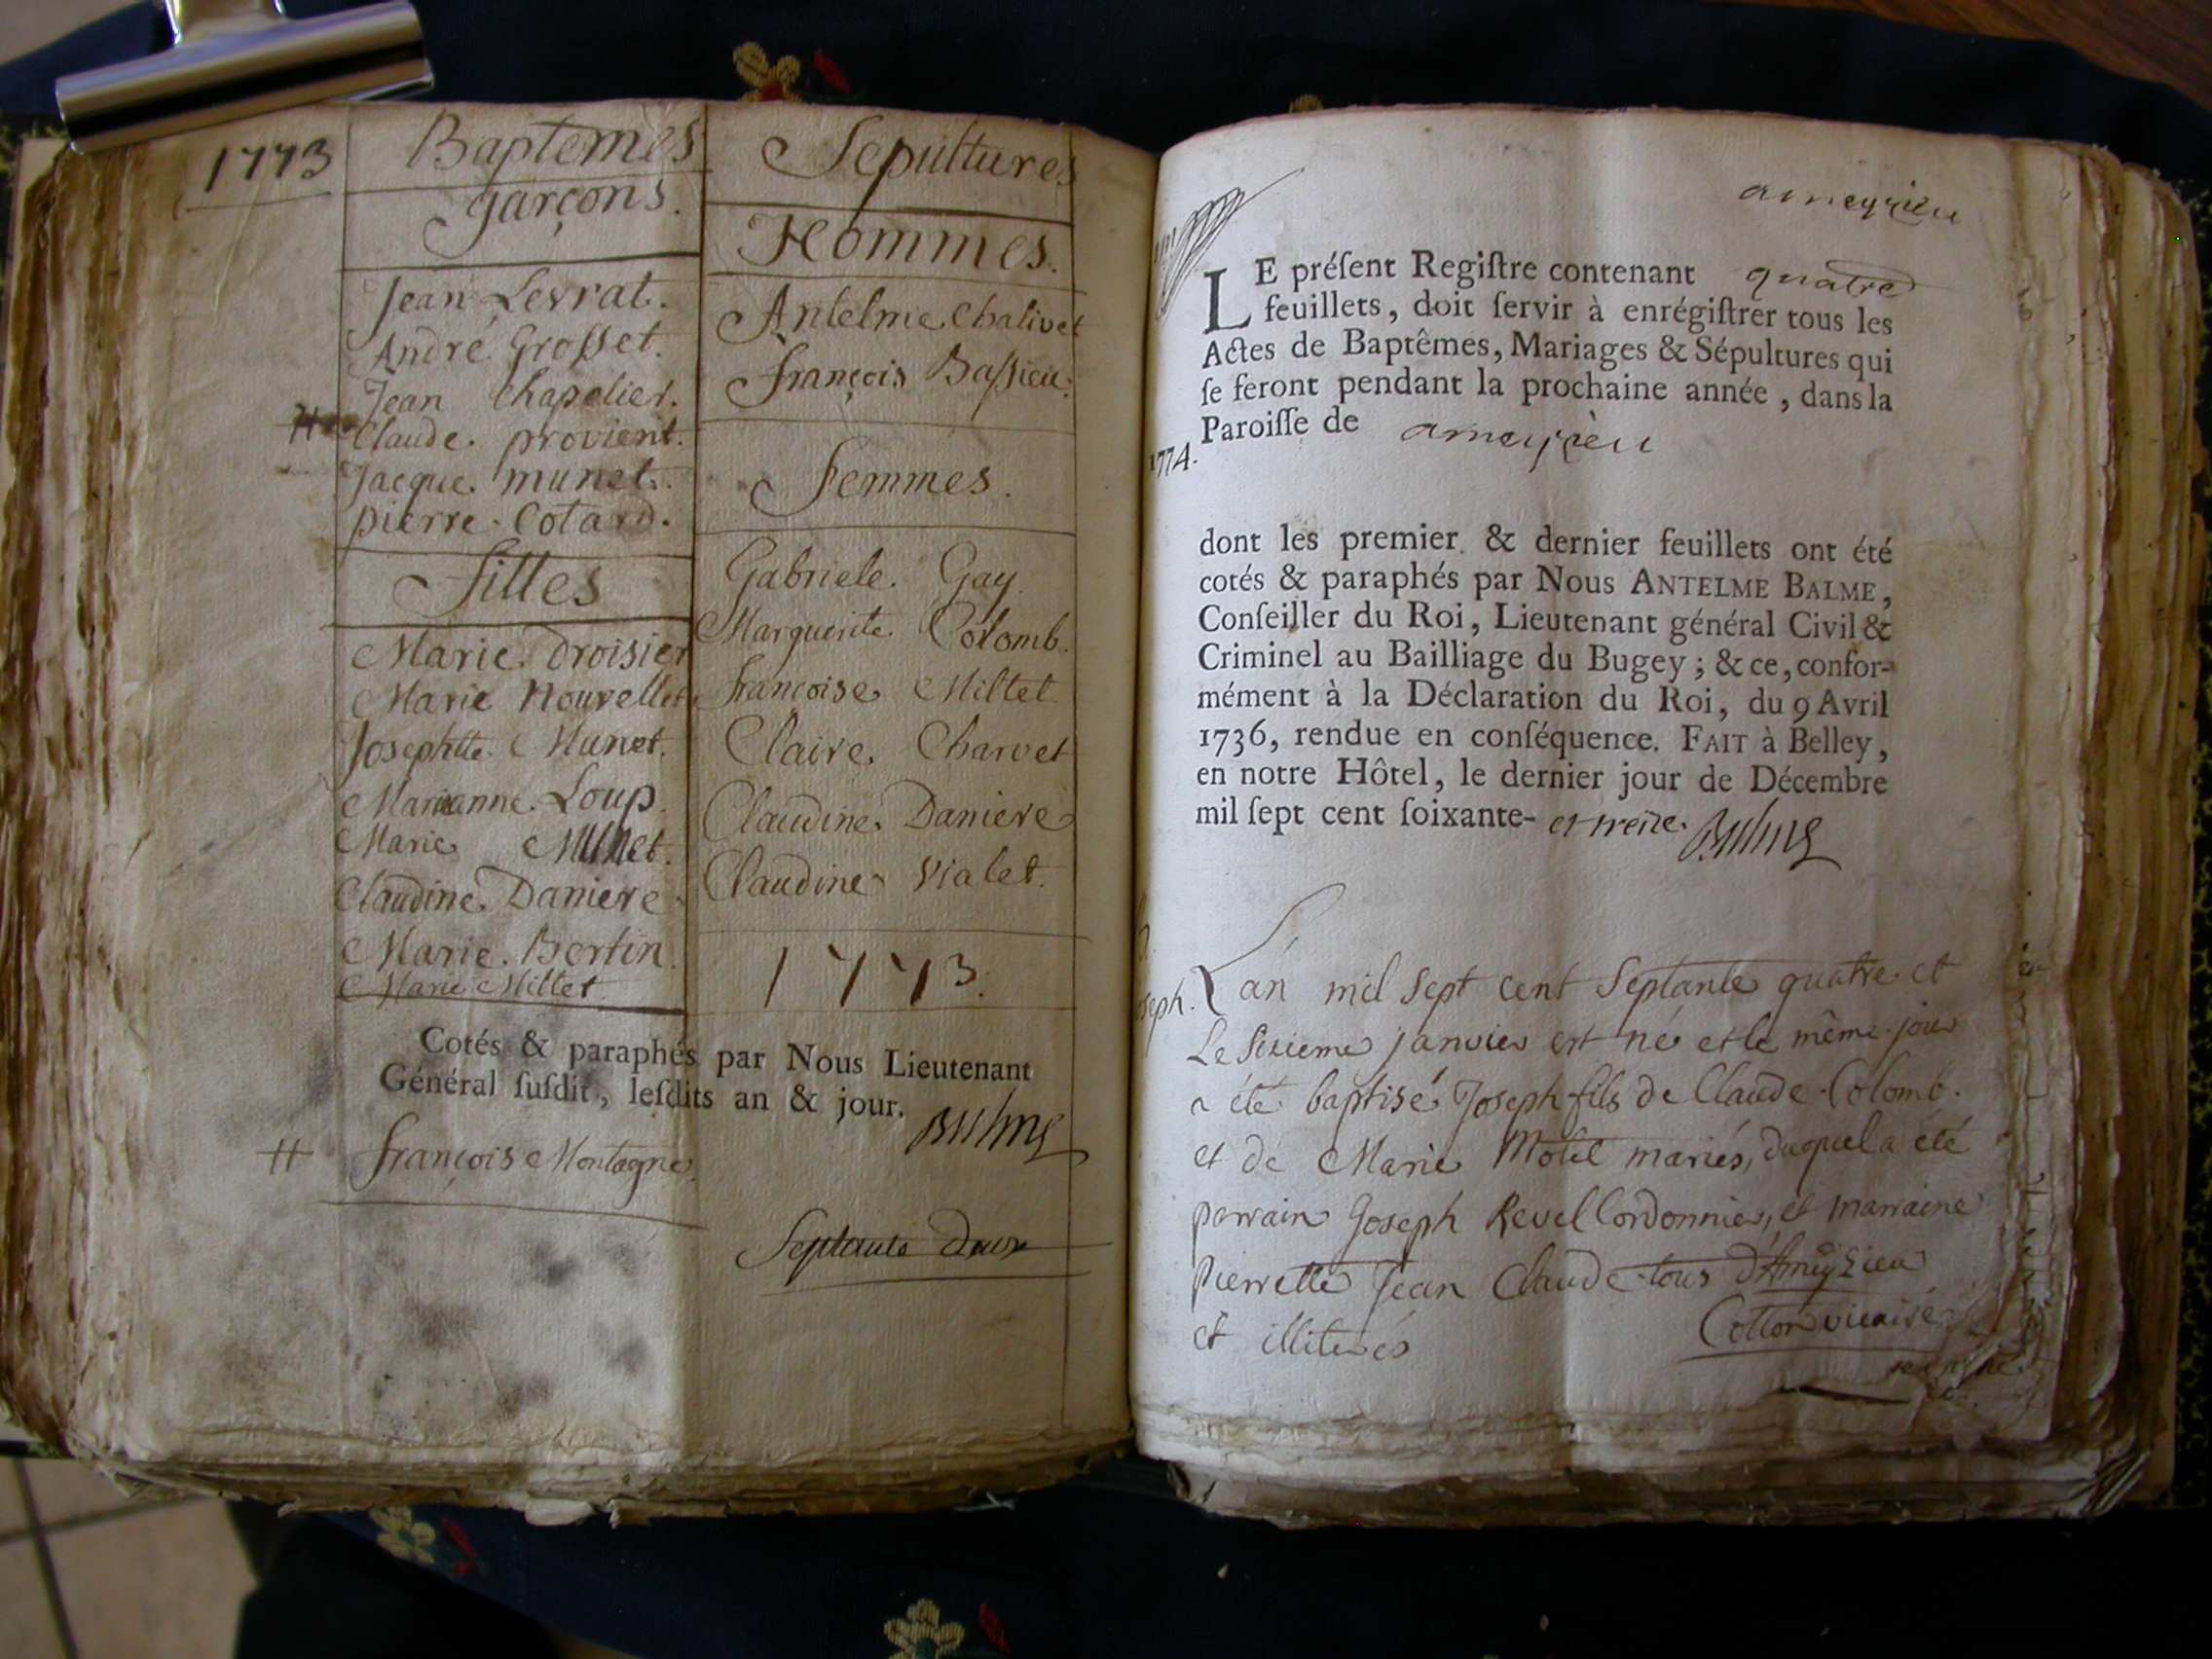 1773
Baptemes
garçons.
Jean Levrat.
André Grosset.
Jean Chapelier.
Claude. provient.
Jacque munet.
pierre. Cotard.
filles
Marie. Droisier
Marie Nouvellet
Josephtte Munet.
Marianne. Loup.
Marie Munet.
Claudine. Daniere
Marie. Bertin.
Marie Millet
Sepultures
Hommes.
Antelme Chalivet
françois Bassieu.
femmes.
Gabriele. Gay
Marguerite. Colomb.
françoise Miltet
Claire. Charvet
Claudine. Daniere
Claudine vialet.
1773.
Cotés & paraphés par Nous Lieutenant
Général ſuſdit, leſdits an & jour. Balme
# françois Montagne.
Septante Deux
ameyzieu
LE préſent Regiſtre contenant quatre
feuillets, doit ſervir à enrégiſtrer tous les
Actes de Baptêmes, Mariages & Sépultures qui
ſe feront pendant la prochaine année, dans la
Paroiſſe de ameyzieu
1774.
dont les premier & dernier feuillets ont été
cotés & paraphés par Nous ANTELME BALME,
Conſeiller du Roi, Lieutenant général Civil &
Criminel au Bailliage du Bugey; & ce, confor-
mément à la Déclaration du Roi, du 9 Avril
1736, rendue en conſéquence. FAIT à Belley,
en notre Hôtel, le dernier jour de Décembre
mil ſept cent ſoixante- et treize. Balme
L'an mil sept cent Septante quatre et
Le Sixieme janvier est né et le même jour
a été baptisé Joseph fils de Claude Colomb.
et de Marie Motel mariés, duquel a été
parrain Joseph Revel Cordonnier, et marraine
pierrette Jean Claude tous d'Ameyzieu
et illiterés Cotton vicaire